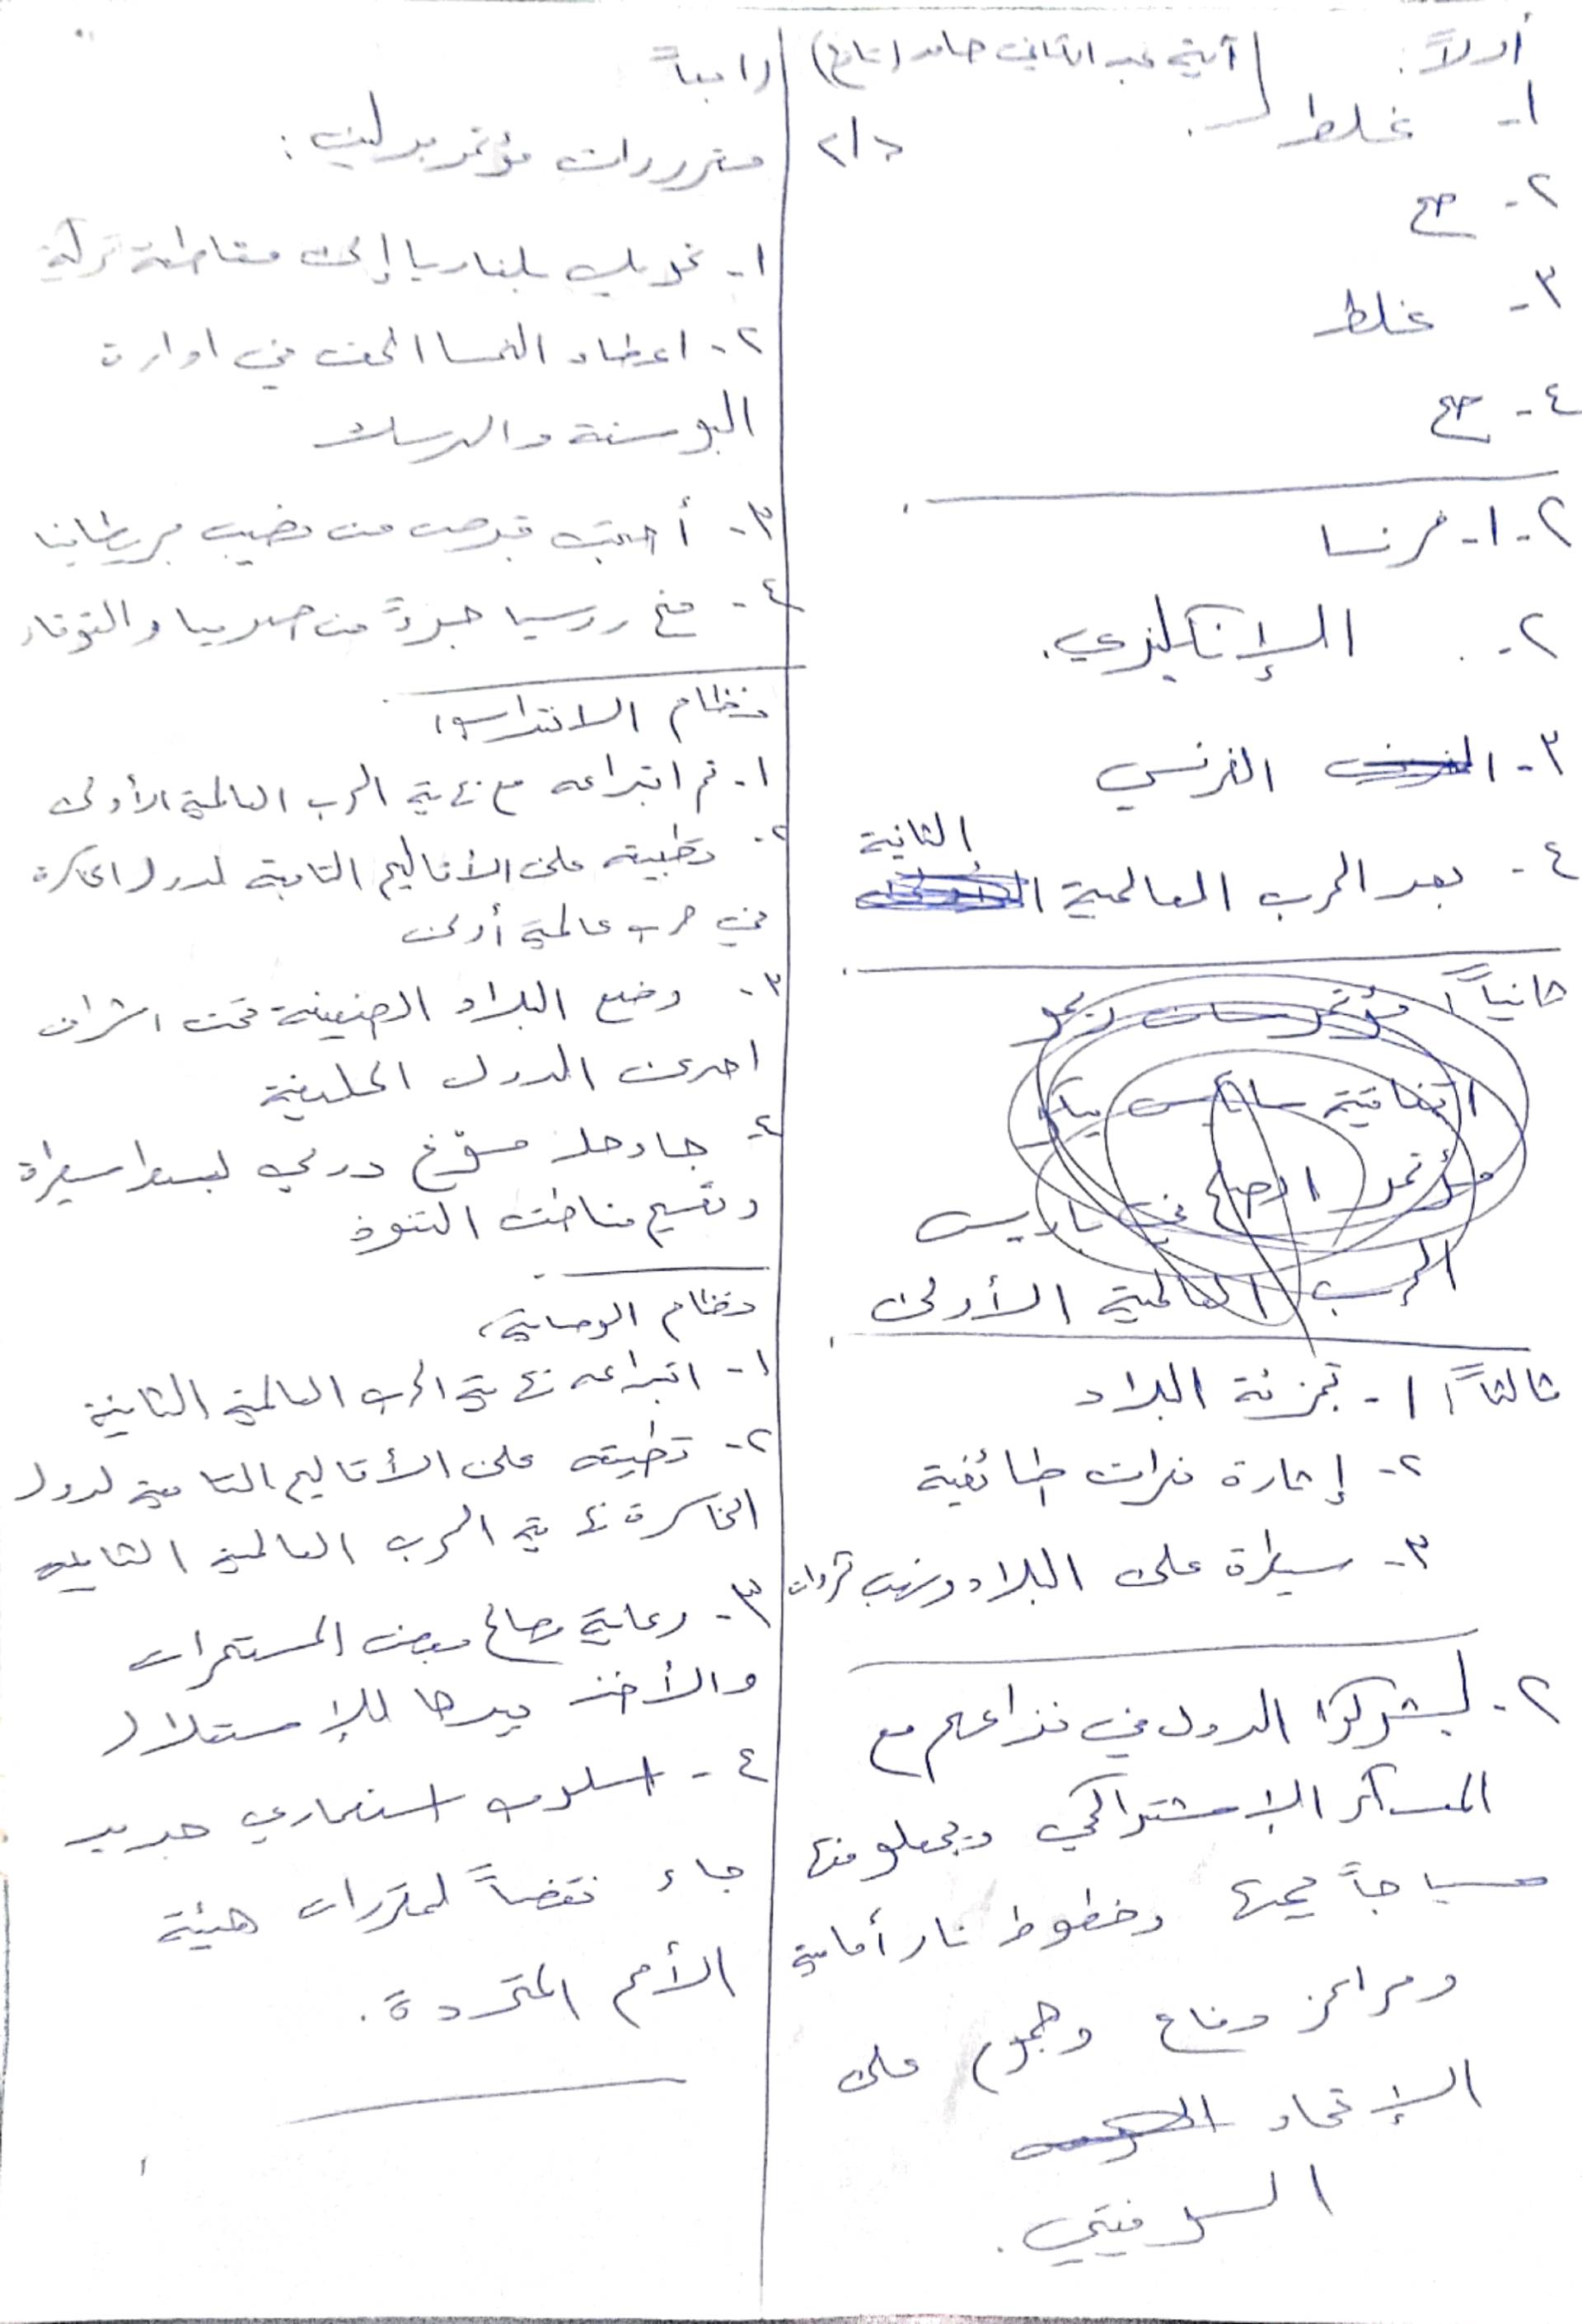 أولاً: آية عبد الغني حامد (تاريخ)
١- غلط
د/٢
٢- صح
٣- غلط
٤- صح
٢- ١- فرنسا
٢- الإنكليزي.
٣- الفرنسي
الثانية
٤- بعد الحرب العالمية
ثانياً: مؤتمر سان ريمو
اتفاقية سايكس بيكو
مؤتمر الصلح في باريس
الحرب العالمية الأولى
ثالثاً: ١- تجزئة البلاد
٢- إثارة نعرات طائفية
٣- سيطرة على البلاد ونهب ثروات
٢- ليشركوا الدول في نزاعهم مع
المعسكر الإشتراكي ويجعلو منها
سياجاً يحميها وخطوط نار أمامية
ومراكز دفاع وهجوم على
الإتحاد
السوفيتي.
رابعاً
مقررات مؤتمر برلين:
١- تحويل بلغاريا إلى مقاطعة تركية
٢- اعطاء النمسا الحق في ادارة
البوسنة والهرسك
٣- أصبحت قبرص من نصيب بريطانيا
٤- منح روسيا جزءً من صربيا والقوقاز
نظام الانتداب:
١- تم ابتداعه مع نهاية الحرب العالمية الأولى
٢- تطبيقه على الأقاليم التابعة لدول الخاسرة
في حرب عالمية أولى
٣- وضع البلاد الضعيفة تحت اشراف
احدى الدول الحليفة
٤- جاء حلاً مسوّغ دولي لبسط سيطرة
وتقسيم مناطق النفوذ
نظام الوصاية:
١- ابتداعه نهاية الحرب العالمية الثانية
٢- تطبيقه على الأقاليم التابعة لدول
الخاسرة نهاية الحرب العالمية الثانية
٣- رعاية مصالح بعض المستعمرات
والأخذ بيدها للإستقلال
٤- اسلوب استعماري جديد
جاء نقضاً لمقررات هيئة
الأمم المتحدة.